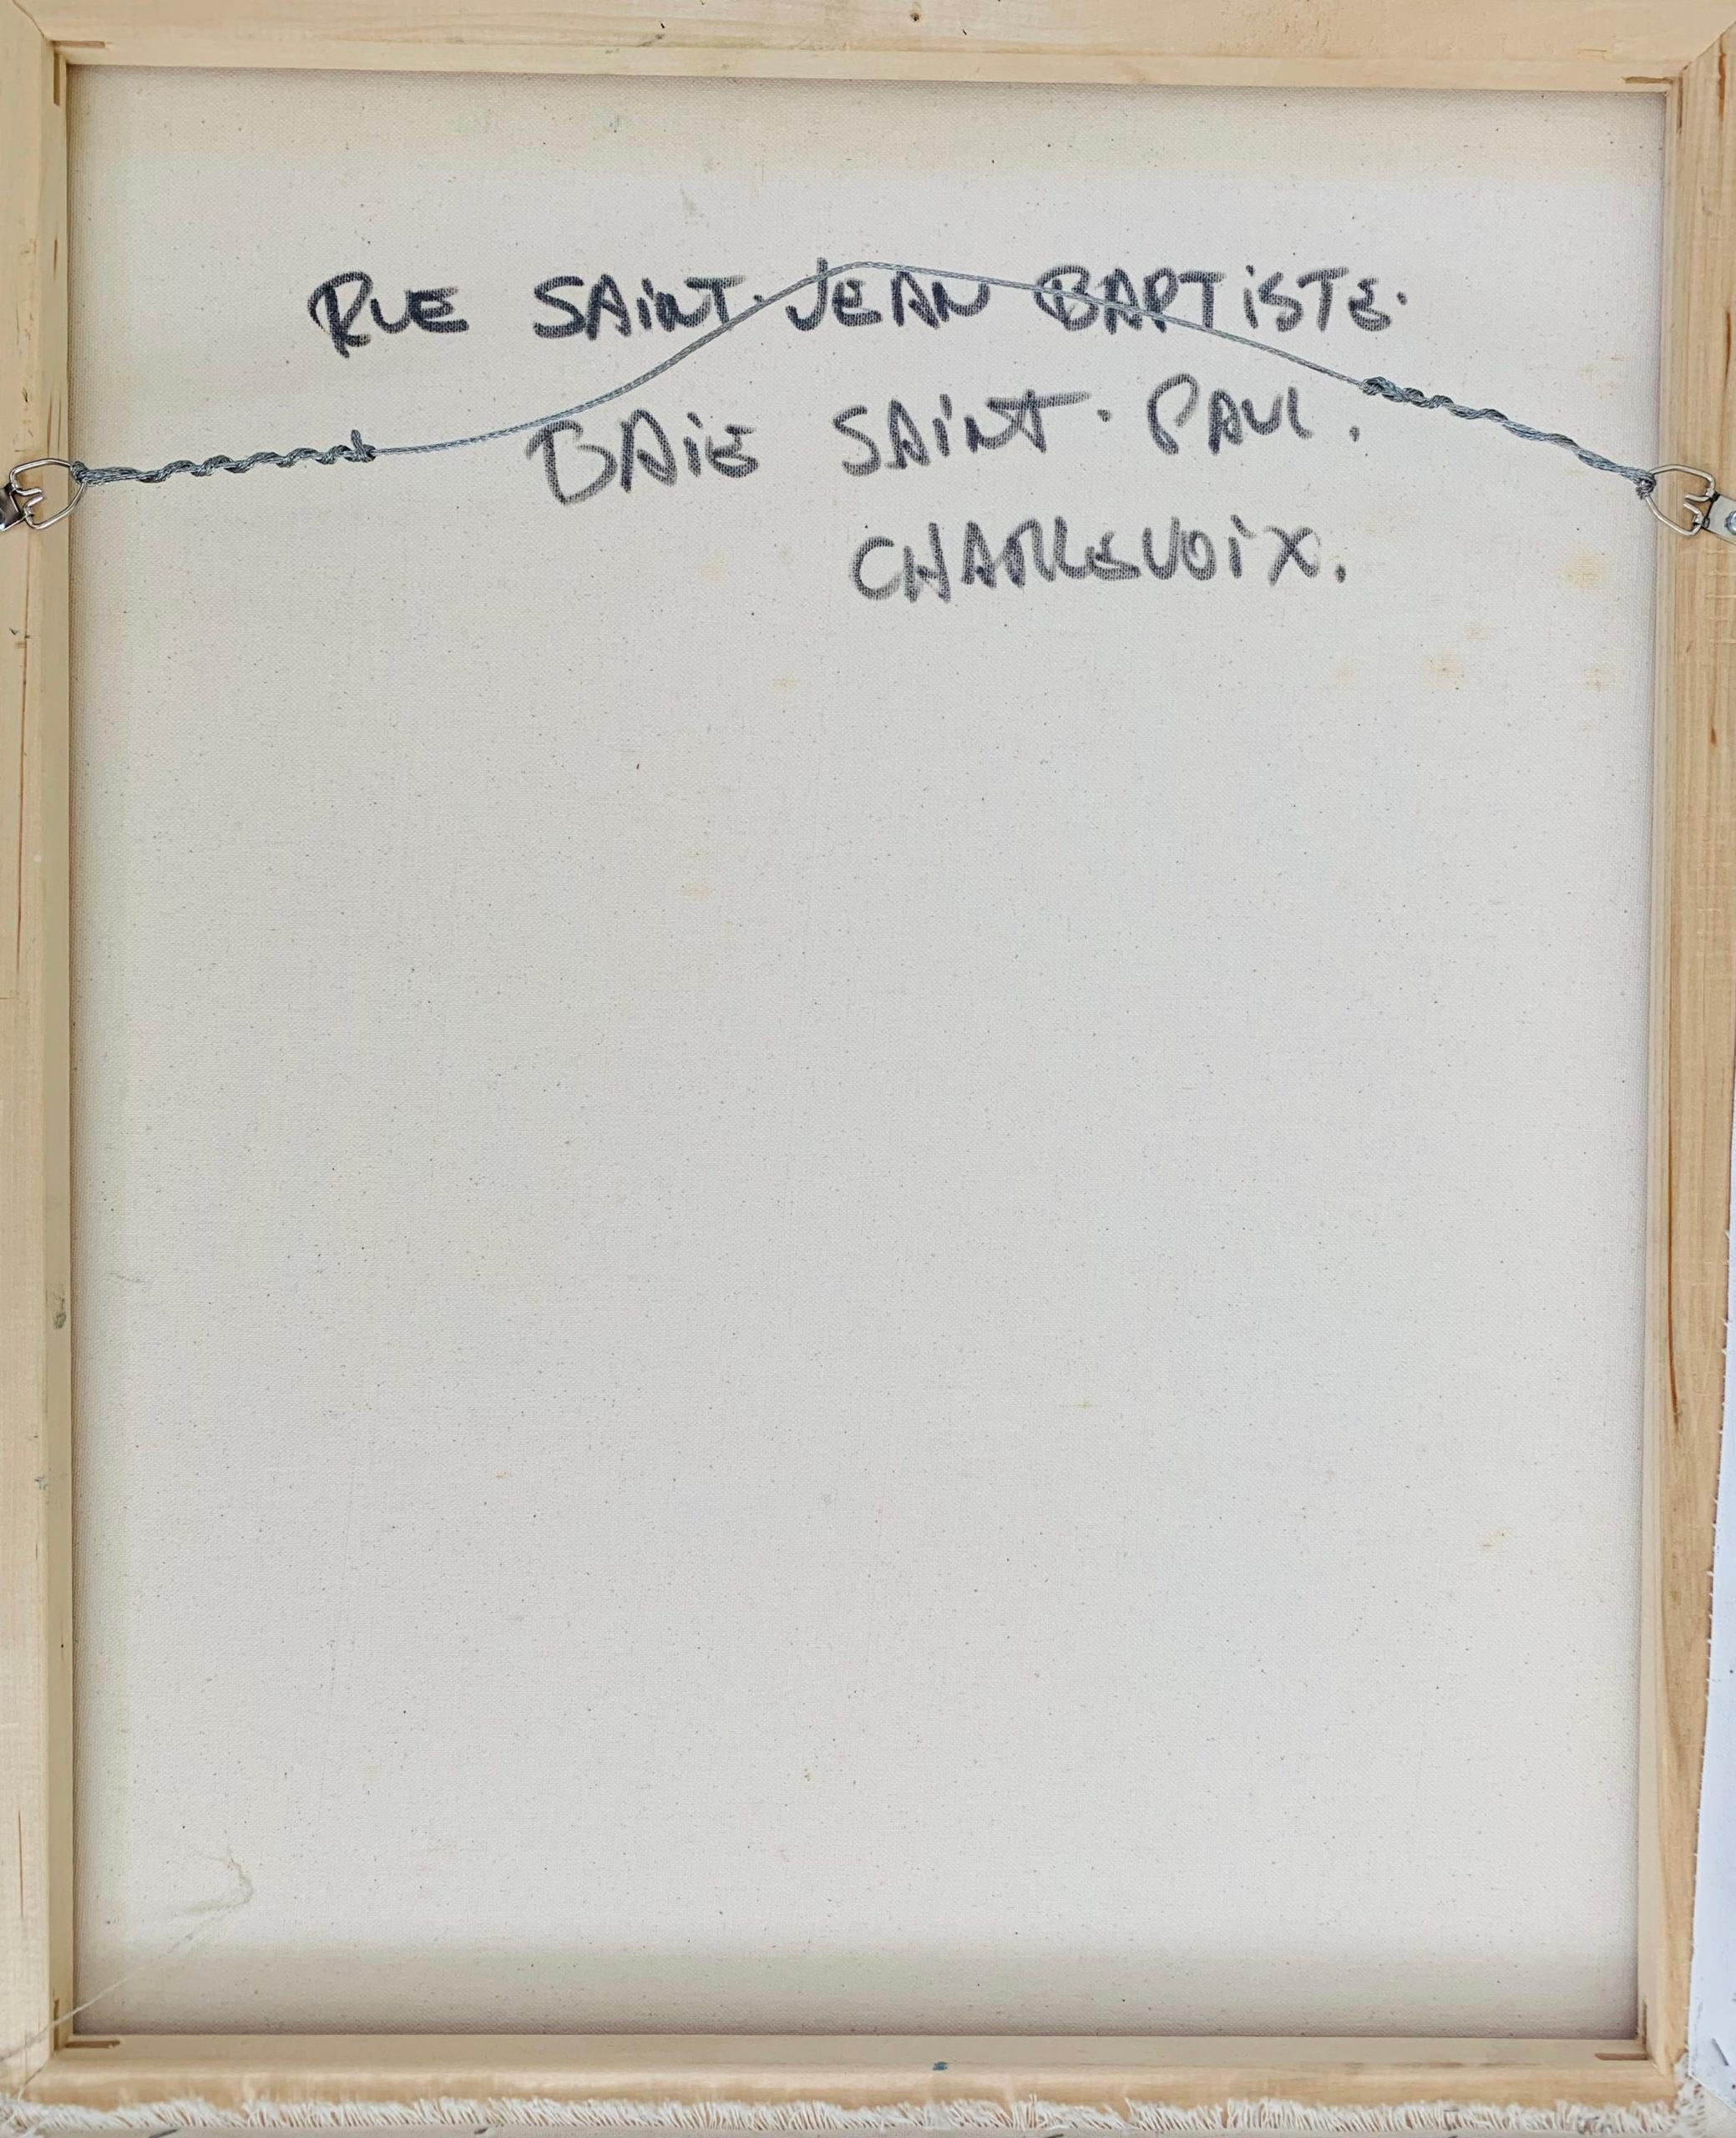 RUE SAiNT-JEAN BAPTiSTE.
BAiE SAiNT-PAUL.
CHARLEVOiX.